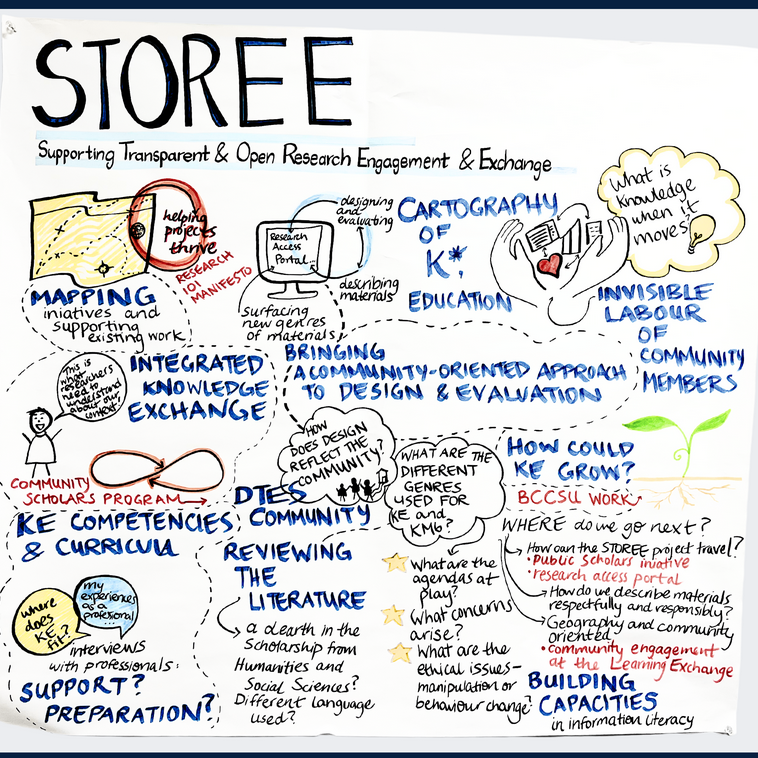 STOREE
Supporting Transparent & Open Research Engagement & Exchange
helping
projects
thrive
RESEARCH
101
MANIFESTO
MAPPING
iniatives and
supporting
existing work
Research
Access
Portal...
designing
and
evaluating
describing
materials
surfacing
new genres
of materials
CARTOGRAPHY
OF
K*,
EDUCATION
What is
Knowledge
when it
moves?
INVISIBLE
LABOUR
OF
COMMUNITY
MEMBERS
This is
what
researchers
need to
understand
about our
context
INTEGRATED
KNOWLEDGE
EXCHANGE
COMMUNITY
SCHOLARS PROGRAM
BRINGING
A COMMUNITY-ORIENTED APPROACH
TO DESIGN & EVALUATION
HOW
DOES DESIGN
REFLECT THE
COMMUNITY?
DTES
COMMUNITY
WHAT ARE THE
DIFFERENT
GENRES
USED FOR
KE and
KMb?
HOW COULD
KE GROW?
BCCSU WORK
KE COMPETENCIES
& CURRICULA
where
does
KE
fit?
my
experiences
as a
professional
...
interviews
with professionals:
SUPPORT?
PREPARATION?
REVIEWING
THE
LITERATURE
a dearth in the
Scholarship from
Humanities and
Social Sciences?
Different language
used?
What are the
agendas at
play?
What concerns
arise?
What are the
ethical issues-
manipulation or
behaviour change?
WHERE do we go next?
How can the STOREE project travel?
• Public Scholars iniative
• research access portal
How do we describe materials
respectfully and responsibly?
Geography and community
oriented
• community engagement
at the Learning Exchange
BUILDING
CAPACITIES
in information literacy